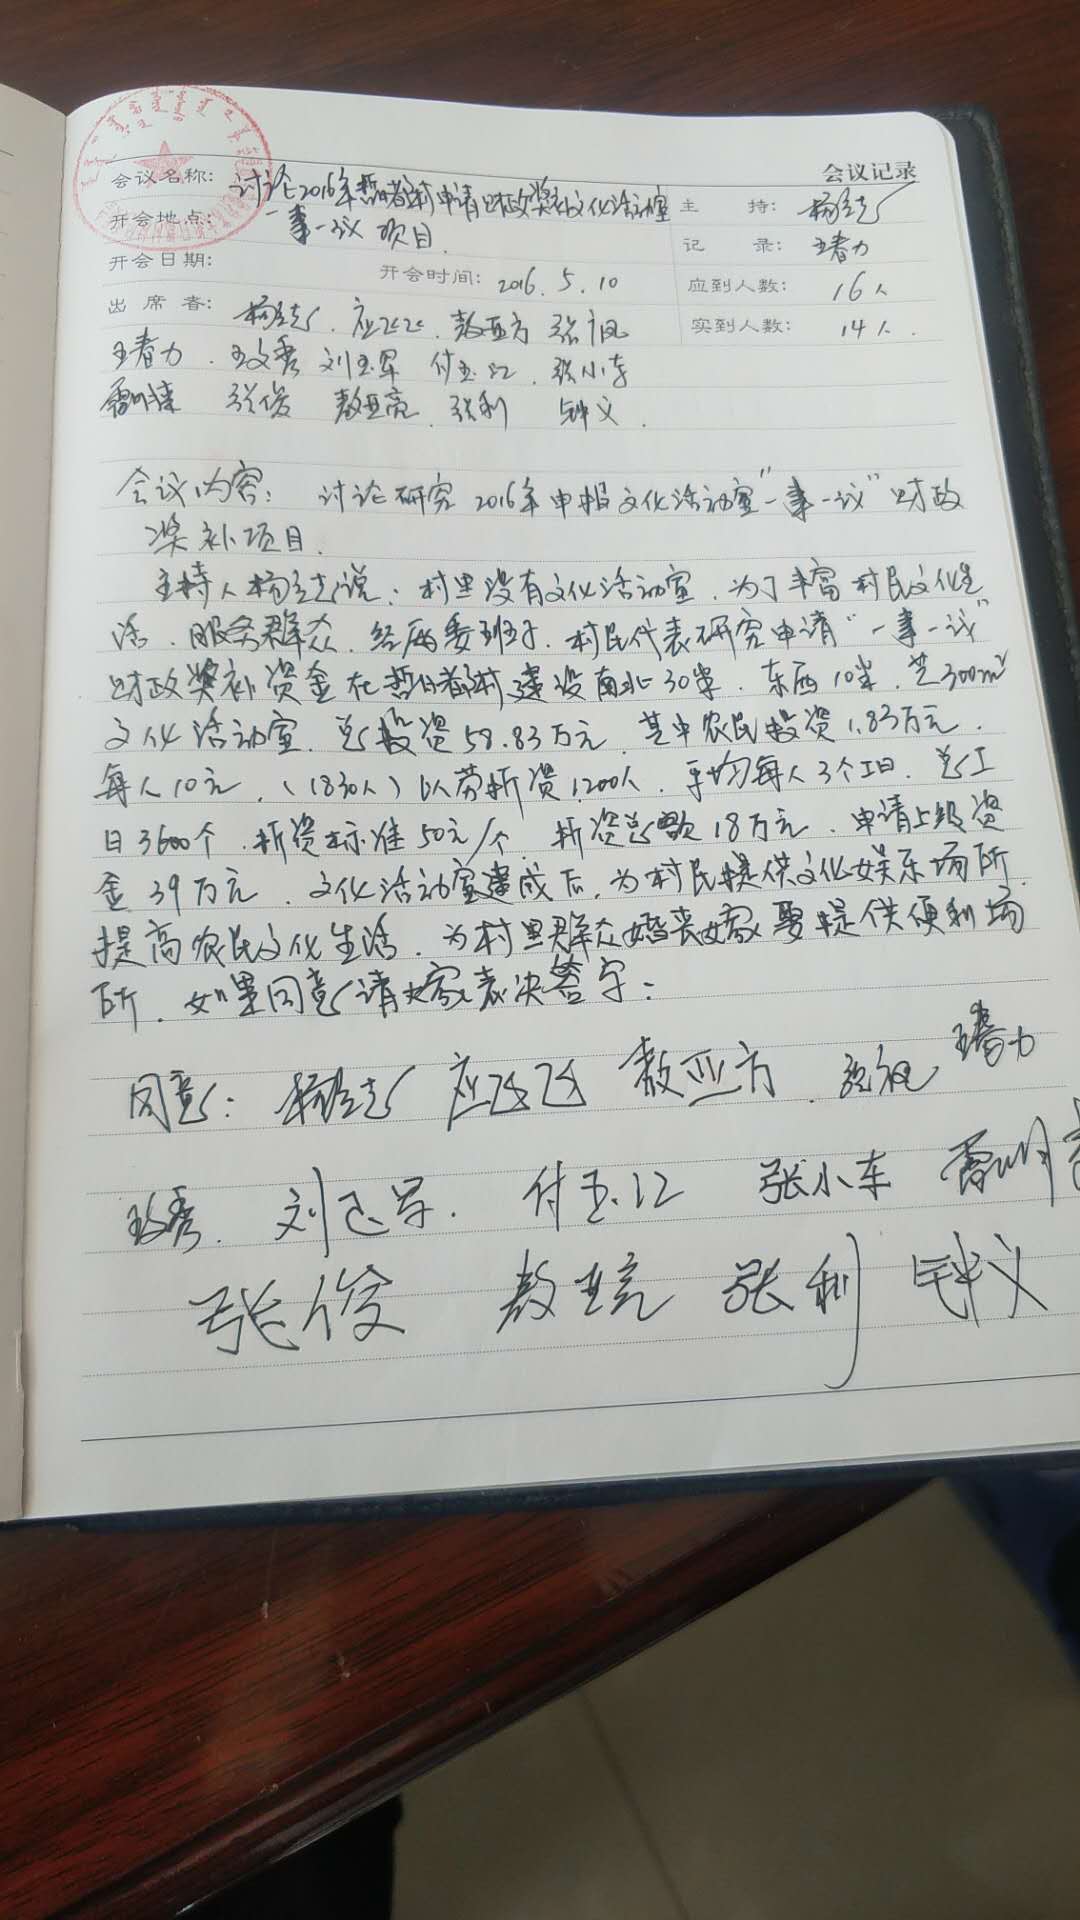 会议记录
会议名称: 讨论2016年哲日者村申请财政奖补文化活动室 主 持:
开会地点: 一事一议 项目. 记 录: 王春力
开会日期: 开会时间: 2016.5.10 应到人数: 16人
出席者: 应飞飞. 敖亚方 实到人数: 14人.
王春力. 刘玉军 付玉江. 张小东
张俊 敖亚亮. 张利 钟义.
会议内容: 讨论研究2016年申报文化活动室"一事一议"财政
奖补项目.
主持人 说: 村里没有文化活动室. 为了丰富村民文化生
活. 服务群众. 经两委班子. 村民代表研究申请"一事一议"
财政奖补资金在哲日者村建设南北30米. 东西10米. 共300m²
文化活动室. 总投资58.83万元. 其中农民投资1.83万元.
每人10元. (1830人) 以劳折资1200人. 平均每人3个工日. 总工
日3600个. 折资标准50元/个. 折资总额18万元. 申请上级资
金39万元. 文化活动室建成后. 为村民提供文化娱乐场所.
提高农民文化生活. 为村里群众婚丧嫁娶提供便利场
所. 如果同意请大家表决签字:
同意: 应飞飞 敖亚方. 王春力
刘玉军. 付玉江 张小东
张俊 敖亚亮 张利 钟义